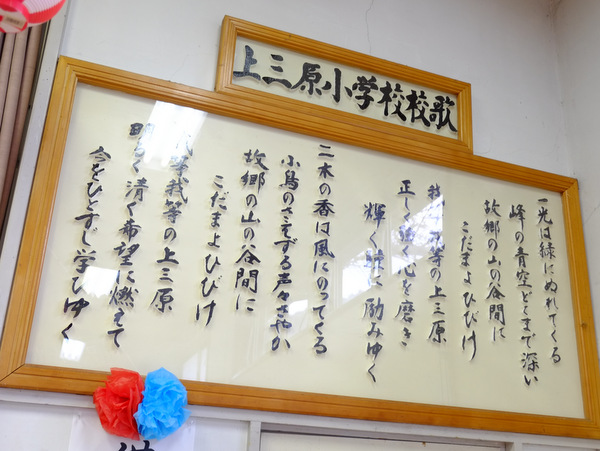 上三原小学校校歌
一光は緑にぬれてくる
峰の青空どこまで深い
故郷の山の谷間に
こだまよひびけ
我等の上三原
正しく 心を磨き
輝く 励みゆく
二木の香は風にのってくる
小鳥のさえずる声々さやか
故郷の山の谷間に
こだまよひびけ
我等の上三原
明るく清く希望に燃えて
今をひとすじ学びゆく